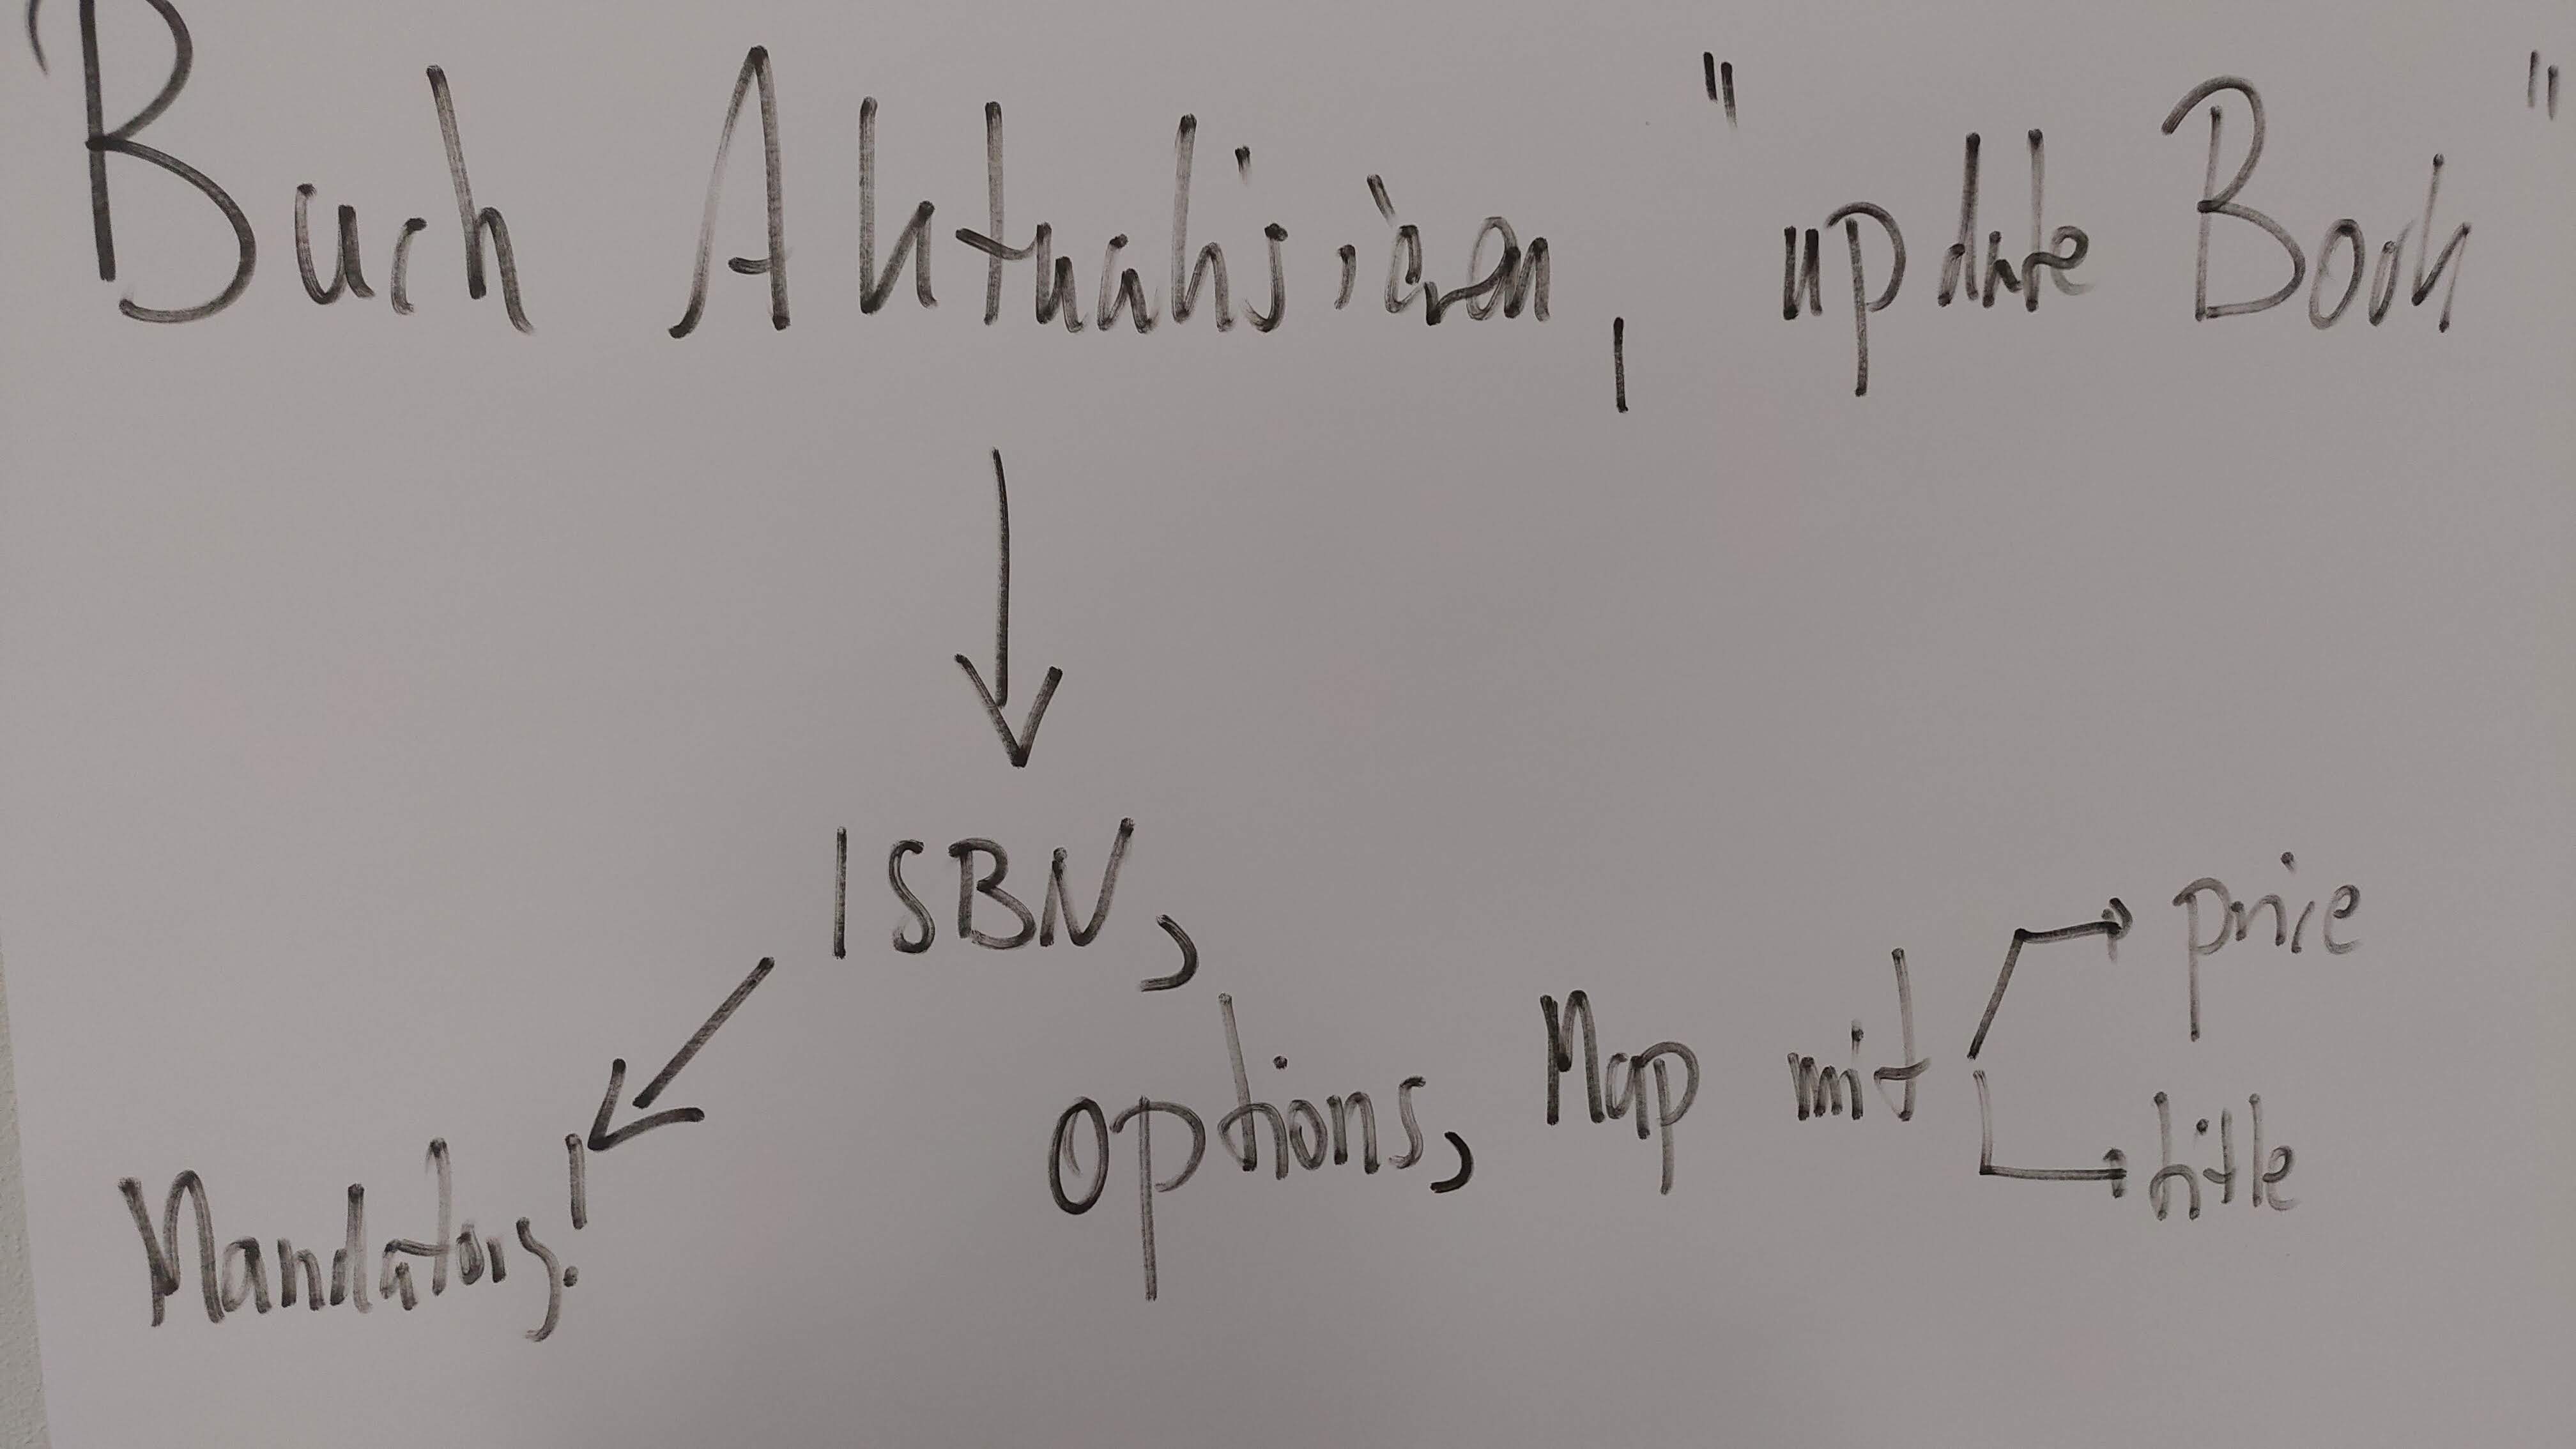 Buch Aktualisieren, "update Book"
ISBN,
Mandatory!
options, Map mit
price
title